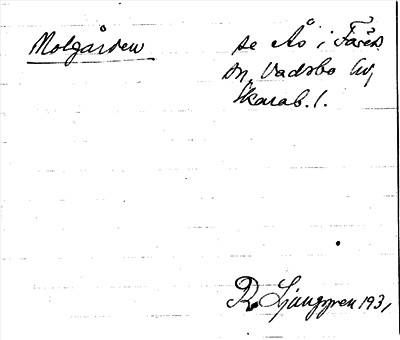 Molgården
se Ås i Fåreds
sn, Vadsbo hd,
Skarab. l.
R. Ljunggren 1931